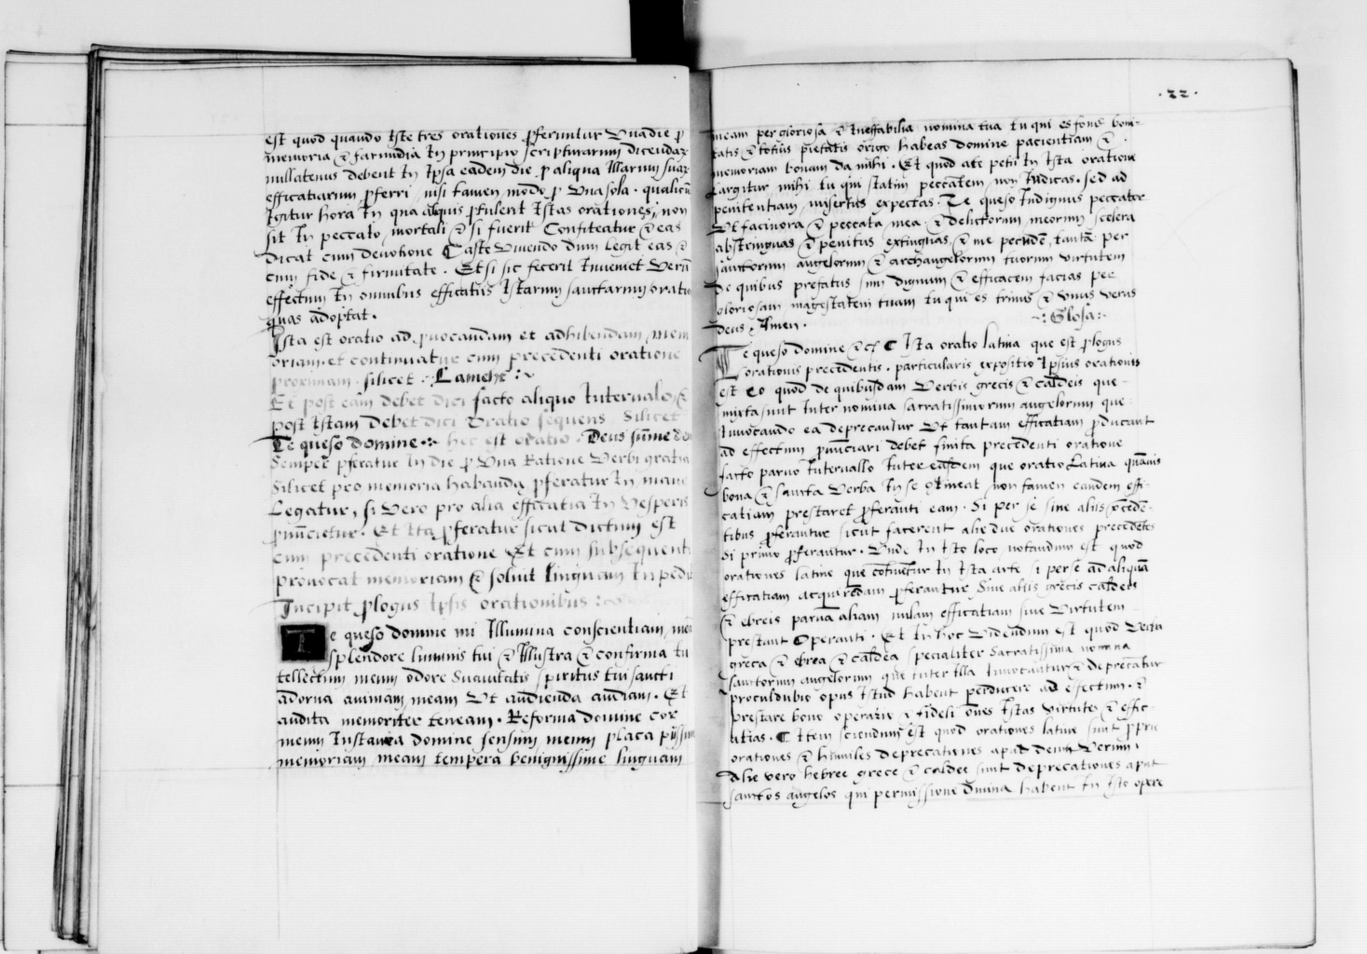 est quod quando Iste tres orationes ꝓferuntur Una die ꝓ
memoria & facundia In principio scripturarum dicendaꝝ
nullatenus debent In Ipsa eadem die ꝓ aliqua Illarum suaꝝ
efficatiarum ꝓferri nisi tamen modo ꝓ Una sola · qualicūꝗ
Igitur hora In qua aliquis ꝓtulerit Istas orationes, non
sit In peccato mortali & si fuerit Confiteatur & eas
dicat cum devotione Caste Vivendo dum legit eas &
cum fide & firmitate · Et si sic fecerit Inveniet Verū
effectum In omnibus efficatiis Istarum sanctarum oratio
quas adoptat ·
Ista est oratio ad ꝓvocandam et adhibendam mem
oriam et continuatur cum precedenti oratione
proximam · silicet · Lameht ·
Et post eam debet dici facto aliquo Intervalo &
post Istam debet dici Oratio sequens Silicet
Te queso domine · hec est oratio · Deus sūme
Semper ꝓferatur In die ꝓ Una Ratione Verbi gratia
Silicet pro memoria habanda ꝓferatur In mane
Legatur, si Vero pro alia efficatia In Vesperis
ꝓnūcietur · Et Ita ꝓferatur sicut dictum est
cum precedenti oratione Et cum subsequenti
provocat memoriam & soluit linguam
Incipit ꝓlogus Ipsis orationibus
Te queso domine mi Illumina conscientiam meā
splendore luminis tui & Illustra & confirma In
tellectum meum odore Suavitatis spiritus tui sancti
adorna animam meam Ut audienda audiam · Et
audita memoriter teneam · Reforma domine cor
meum Instaura domine sensum meum placa piissime
memoriam meam tempera benignissime linguam
· 22 ·
meam per gloriosa & Ineffabilia nomina tua tu qui es fons boni-
tatis & totius pietatis origo habeas domine pacientiam &
memoriam bonam da mihi · Et quod a te petii In Ista oratione
largitur mihi tu qui statim peccātem non Iudicas · sed ad
penitentiam misertus expectas · Te queso Indignus peccator
Ut facinora & peccata mea & delictorum meorum scelera
abstringuas & penitus extinguas, & me per
sanctorum angelorum & archangelorum tuorum virtutem
de quibus prefatus sum dignum & efficacem facias per
gloriosam magestatem tuam tu qui es trinus & Unus verus
deus, Amen · Glosa
Te queso domine &c̄ C Ista oratio latina que est ꝓlogus
orationis precedentis · particularis expositio Ipsius orationis
est eo quod de quibusdam Verbis grecis & caldeis que-
mixta sunt Inter nomina sacratissimorum angelorum que-
Invocando ea deprecantur Ut tantam efficatiam ꝓducant
ad effectum ꝓnunciari debet finita precedenti oratione
facto parvo Intervallo Inter easdem que oratio Latina quāvis
bona & sancta Verba In se contineat non tamen eandem effi-
catiam prestaret ꝓferanti eam · Si per se sine aliis p̄ceden-
tibus ꝓferantur sicut facerent alie due orationes precedētes
si primo ꝓferantur · Unde In Isto loco notandum est quod
orationes latine que cōtinētur In Ista arte si per se ad aliquā
efficatiam acquirēdam ꝓferantur Sine aliis grecis caldeis
& ebreis parvā aliam nulam efficatiam sive Virtutem
prestant Operanti · Et In hoc Videndum est quod Verba
greca & ebrea & caldea specialiter Sacratissima nomina
sanctorum angelorum que Inter Illa Invocantur & deprecātur
proculdubio opus Istud habent ꝑducere ad effectum · &
prestare bono operario & fideli ōnes Istas virtutes & effic-
atias · C Item sciendum est quod orationes latine sunt ꝓprie
orationes & humiles deprecationes apud deum Verum ·
Alie vero hebree grece & caldee sunt deprecationes aput
sanctos angelos qui permissione divina habent In Isto opere